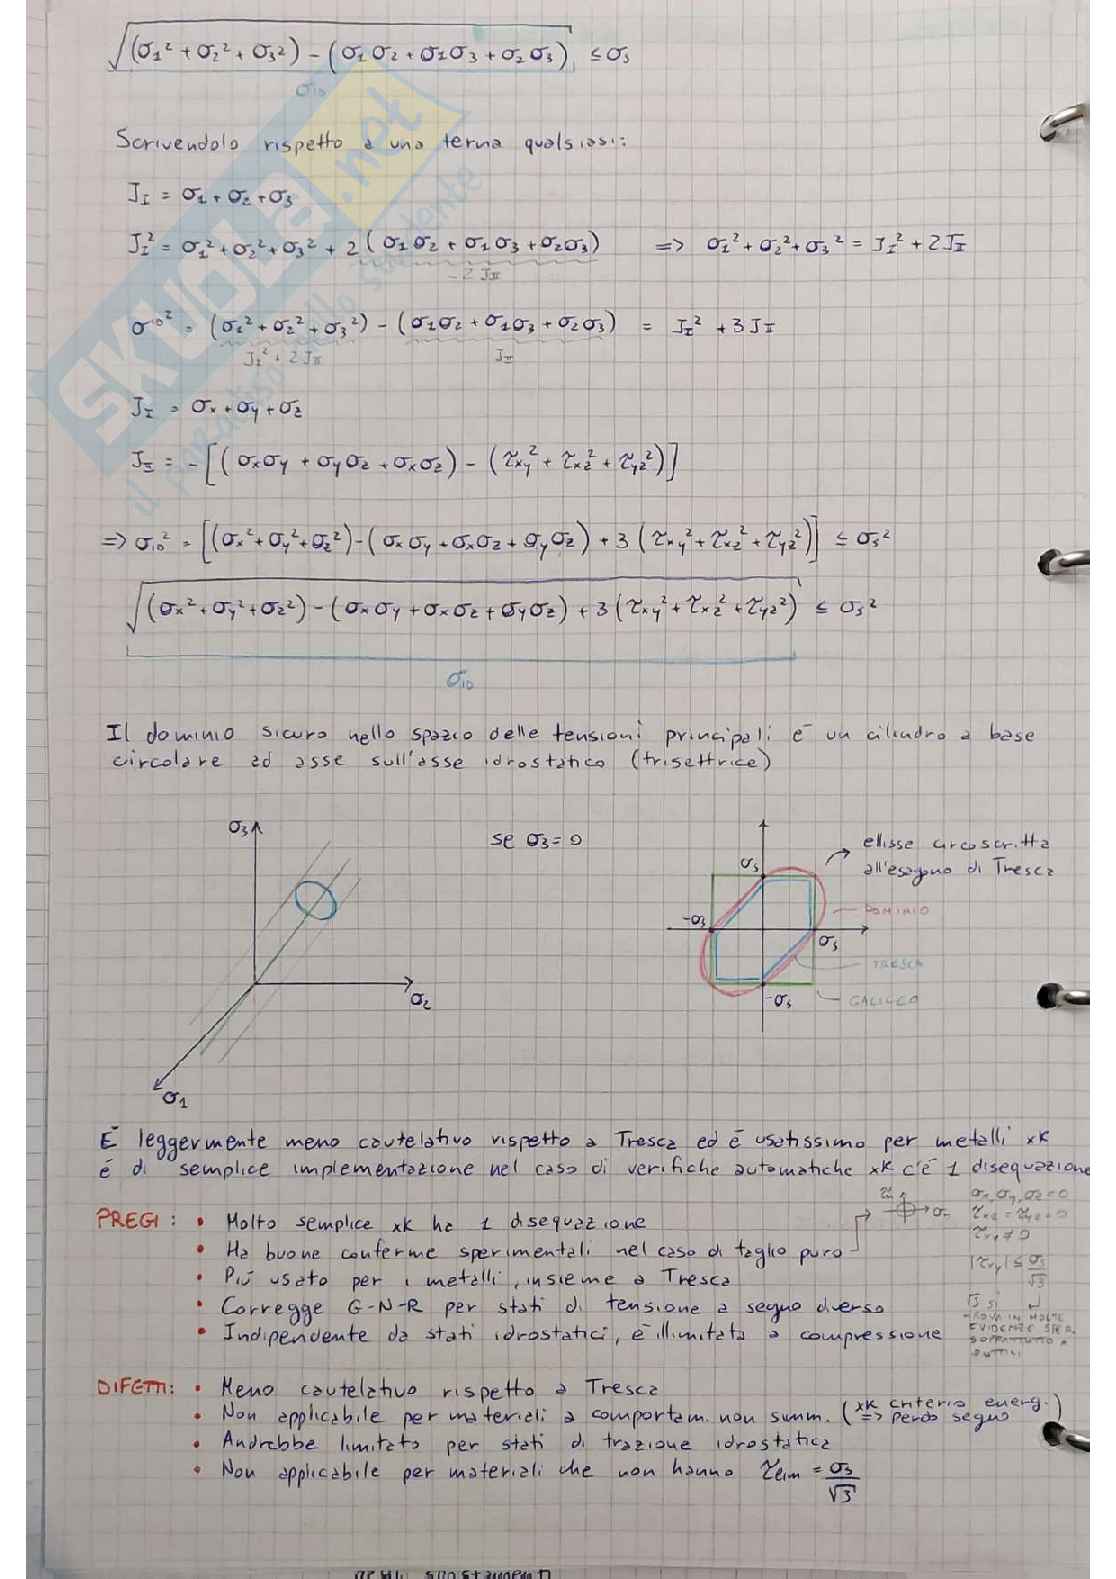 √(σ1² + σ2² + σ3²) - (σ1σ2 + σ1σ3 + σ2σ3) ≤ σs
σID
Scrivendolo rispetto a una terna qualsiasi:
JI = σ1 + σ2 + σ3
JI² = σ1² + σ2² + σ3² + 2(σ1σ2 + σ1σ3 + σ2σ3) => σ1² + σ2² + σ3² = JI² + 2JII
-2 JII
σID² = (σ1² + σ2² + σ3²) - (σ1σ2 + σ1σ3 + σ2σ3) = JI² + 3JII
JI² + 2JII JII
JI = σx + σy + σz
JII = -[(σxσy + σyσz + σxσz) - (τxy² + τxz² + τyz²)]
=> σID² = [(σx² + σy² + σz²) - (σxσy + σxσz + σyσz) + 3(τxy² + τxz² + τyz²)] ≤ σs²
√(σx² + σy² + σz²) - (σxσy + σxσz + σyσz) + 3(τxy² + τxz² + τyz²) ≤ σs²
σID
Il dominio sicuro nello spazio delle tensioni principali è un cilindro a base
circolare ad asse sull'asse idrostatico (trisettrice)
σ3
σ2
σ1
se σ3 = 0
σs
-σs
σs
-σs
ellisse circoscritta
all'esagono di Tresca
DOMINIO
TRESCA
GALILEO
È leggermente meno cautelativo rispetto a Tresca ed è usatissimo per metalli xK
è di semplice implementazione nel caso di verifiche automatiche xK c'è 1 disequazione
PREGI: • Molto semplice xK ha 1 disequazione
• Ha buone conferme sperimentali nel caso di taglio puro
• Più usato per i metalli, insieme a Tresca
• Corregge G-N-R per stati di tensione a segno diverso
• Indipendente da stati idrostatici, è illimitato a compressione
σx, σy, σz = 0
τxz = τyz = 0
τxy ≠ 0
|τxy| ≤ σs/√3
SI
TROVA IN MOLTE
EVIDENZE SPER.
SOPRATTUTTO X
DUTTILI
DIFETTI: • Meno cautelativo rispetto a Tresca
• Non applicabile per materiali a comportam. non simm. (xK criterio energ. => perdo segno)
• Andrebbe limitato per stati di trazione idrostatica
• Non applicabile per materiali che non hanno τlim = σs/√3
SKUOLA.net
il paradiso dello studente